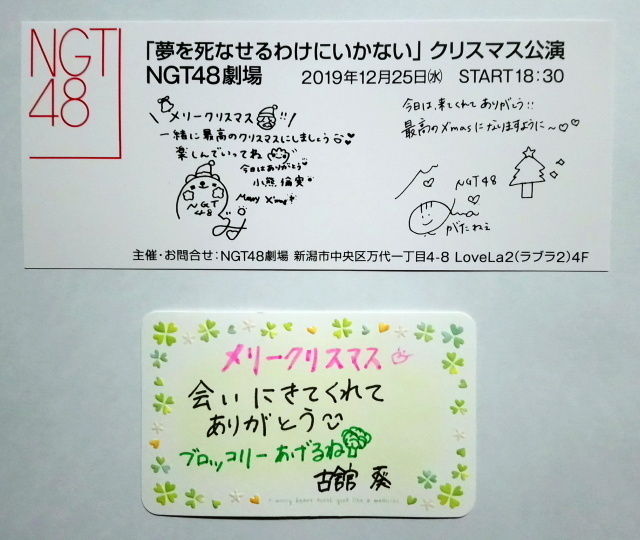 NGT
48
「夢を死なせるわけにいかない」クリスマス公演
NGT48劇場 2019年12月25日㈬ START18:30
メリークリスマス!!
一緒に最高のクリスマスにしましょう
楽しんでいってね
今日はありがとう
小熊倫実
Merry X'mas
NGT
48
今日は、来てくれてありがとう!!
最高のXmasになりますように〜♡♡
NGT48
がたねぇ
主催・お問合せ:NGT48劇場 新潟市中央区万代一丁目4-8 LoveLa2(ラブラ2)4F
メリークリスマス
会いにきてくれて
ありがとう
ブロッコリーあげるね
古舘 葵